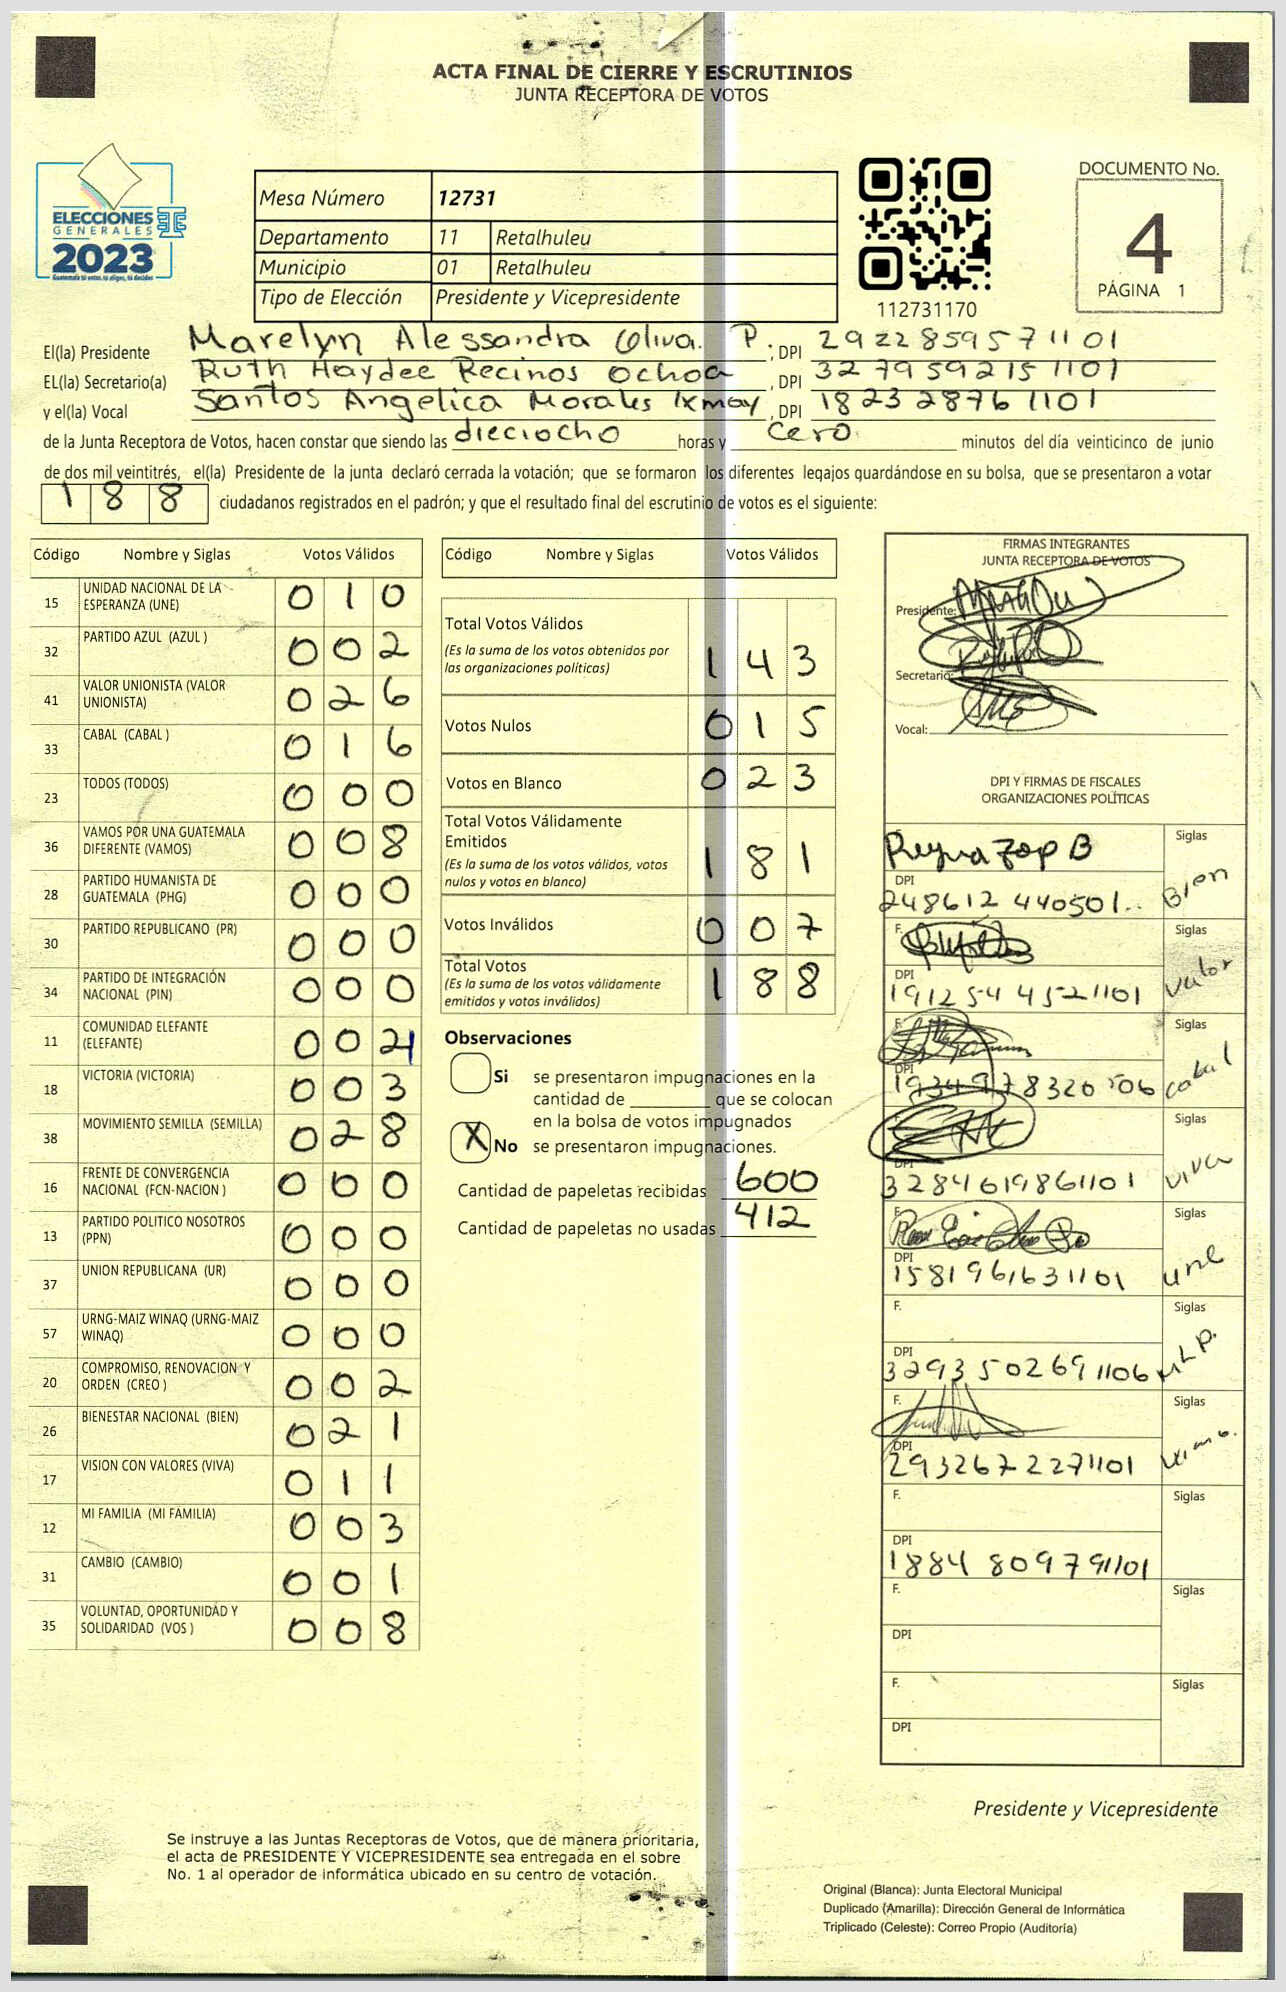 ACTA FINAL DE CIERRE Y ESCRUTINIOS
JUNTA RECEPTORA DE VOTOS
ELECCIONES
GENERALES
2023
Guatemala tú votas, tú eliges, tú decides
Mesa Número 12731
Departamento 11 Retalhuleu
Municipio 01 Retalhuleu
Tipo de Elección Presidente y Vicepresidente
112731170
DOCUMENTO No.
4
PÁGINA 1
El(la) Presidente Marelyn Alessandra Oliva. P. , DPI 2922859571101
EL(la) Secretario(a) Ruth Haydee Recinos Ochoa , DPI 3279592151101
y el(la) Vocal Santos Angelica Morales Ixmay , DPI 1823287611101
de la Junta Receptora de Votos, hacen constar que siendo las dieciocho horas y cero minutos del día veinticinco de junio
de dos mil veintitrés, el(la) Presidente de la junta declaró cerrada la votación; que se formaron los diferentes legajos guardándose en su bolsa, que se presentaron a votar
188 ciudadanos registrados en el padrón; y que el resultado final del escrutinio de votos es el siguiente:
Código Nombre y Siglas Votos Válidos
15 UNIDAD NACIONAL DE LA ESPERANZA (UNE) 0 1 0
32 PARTIDO AZUL (AZUL ) 0 0 2
41 VALOR UNIONISTA (VALOR UNIONISTA) 0 2 6
33 CABAL (CABAL ) 0 1 6
23 TODOS (TODOS) 0 0 0
36 VAMOS POR UNA GUATEMALA DIFERENTE (VAMOS) 0 0 8
28 PARTIDO HUMANISTA DE GUATEMALA (PHG) 0 0 0
30 PARTIDO REPUBLICANO (PR) 0 0 0
34 PARTIDO DE INTEGRACIÓN NACIONAL (PIN) 0 0 0
11 COMUNIDAD ELEFANTE (ELEFANTE) 0 0
18 VICTORIA (VICTORIA) 0 0 3
38 MOVIMIENTO SEMILLA (SEMILLA) 0 2 8
16 FRENTE DE CONVERGENCIA NACIONAL (FCN-NACION ) 0 0 0
13 PARTIDO POLITICO NOSOTROS (PPN) 0 0 0
37 UNION REPUBLICANA (UR) 0 0 0
57 URNG-MAIZ WINAQ (URNG-MAIZ WINAQ) 0 0 0
20 COMPROMISO, RENOVACION Y ORDEN (CREO ) 0 0 2
26 BIENESTAR NACIONAL (BIEN) 0 2 1
17 VISION CON VALORES (VIVA) 0 1 1
12 MI FAMILIA (MI FAMILIA) 0 0 3
31 CAMBIO (CAMBIO) 0 0 1
35 VOLUNTAD, OPORTUNIDAD Y SOLIDARIDAD (VOS ) 0 0 8
Código Nombre y Siglas Votos Válidos
Total Votos Válidos 1 4 3
(Es la suma de los votos obtenidos por
las organizaciones políticas)
Votos Nulos 0 1 5
Votos en Blanco 0 2 3
Total Votos Válidamente
Emitidos 1 8 1
(Es la suma de los votos válidos, votos
nulos y votos en blanco)
Votos Inválidos 0 0 7
Total Votos 1 8 8
(Es la suma de los votos válidamente
emitidos y votos inválidos)
Observaciones
Si se presentaron impugnaciones en la
cantidad de ________ que se colocan
en la bolsa de votos impugnados
X No se presentaron impugnaciones.
Cantidad de papeletas recibidas 600
Cantidad de papeletas no usadas 412
FIRMAS INTEGRANTES
JUNTA RECEPTORA DE VOTOS
Presidente:
Secretario:
Vocal:
DPI Y FIRMAS DE FISCALES
ORGANIZACIONES POLÍTICAS
Reyna Zop B Siglas
DPI
248612 440501.. Bien
F. Siglas
DPI
191254 4521101 Valor
F. Siglas
DPI
cabal
Siglas
DPI
3284619861101 viva
F. Siglas
DPI
1581961631101 une
F. Siglas
DPI
3293502691106 MLP.
F. Siglas
DPI
2932672271101
F. Siglas
DPI
1884 809791101
F. Siglas
DPI
F. Siglas
DPI
Presidente y Vicepresidente
Se instruye a las Juntas Receptoras de Votos, que de manera prioritaria,
el acta de PRESIDENTE Y VICEPRESIDENTE sea entregada en el sobre
No. 1 al operador de informática ubicado en su centro de votación.
Original (Blanca): Junta Electoral Municipal
Duplicado (Amarilla): Dirección General de Informática
Triplicado (Celeste): Correo Propio (Auditoría)